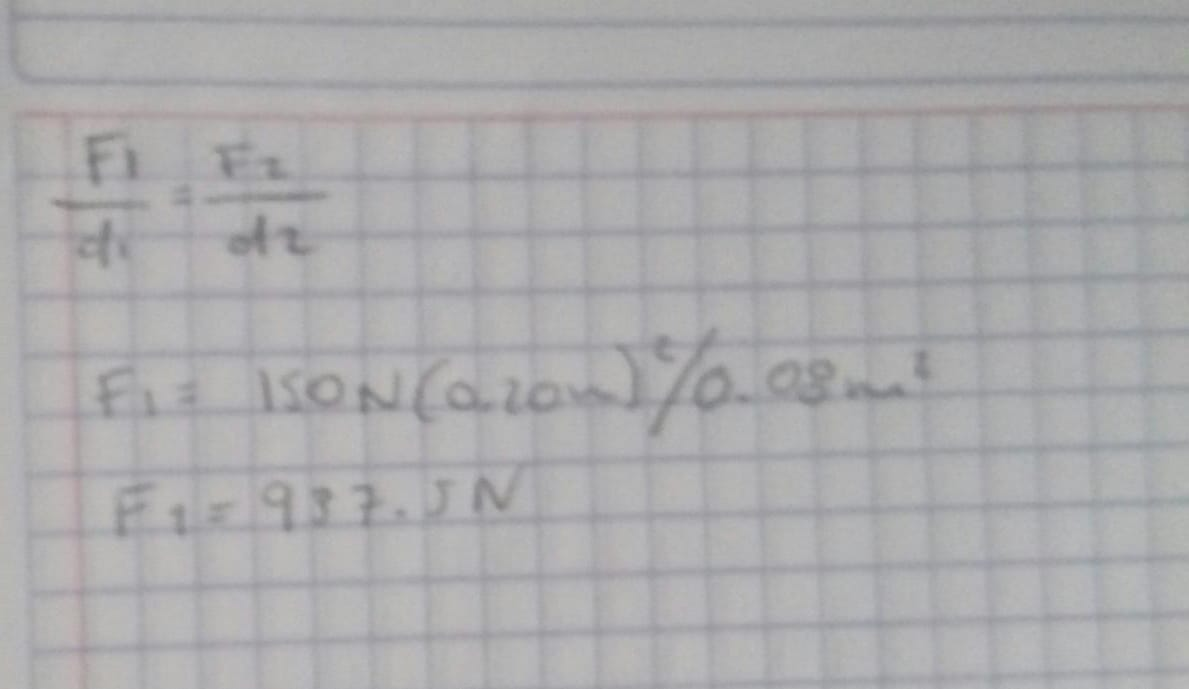 F1/d1 = F2/d2
F1 = 150N(0.20m)²/0.08m²
F1 = 937.5N